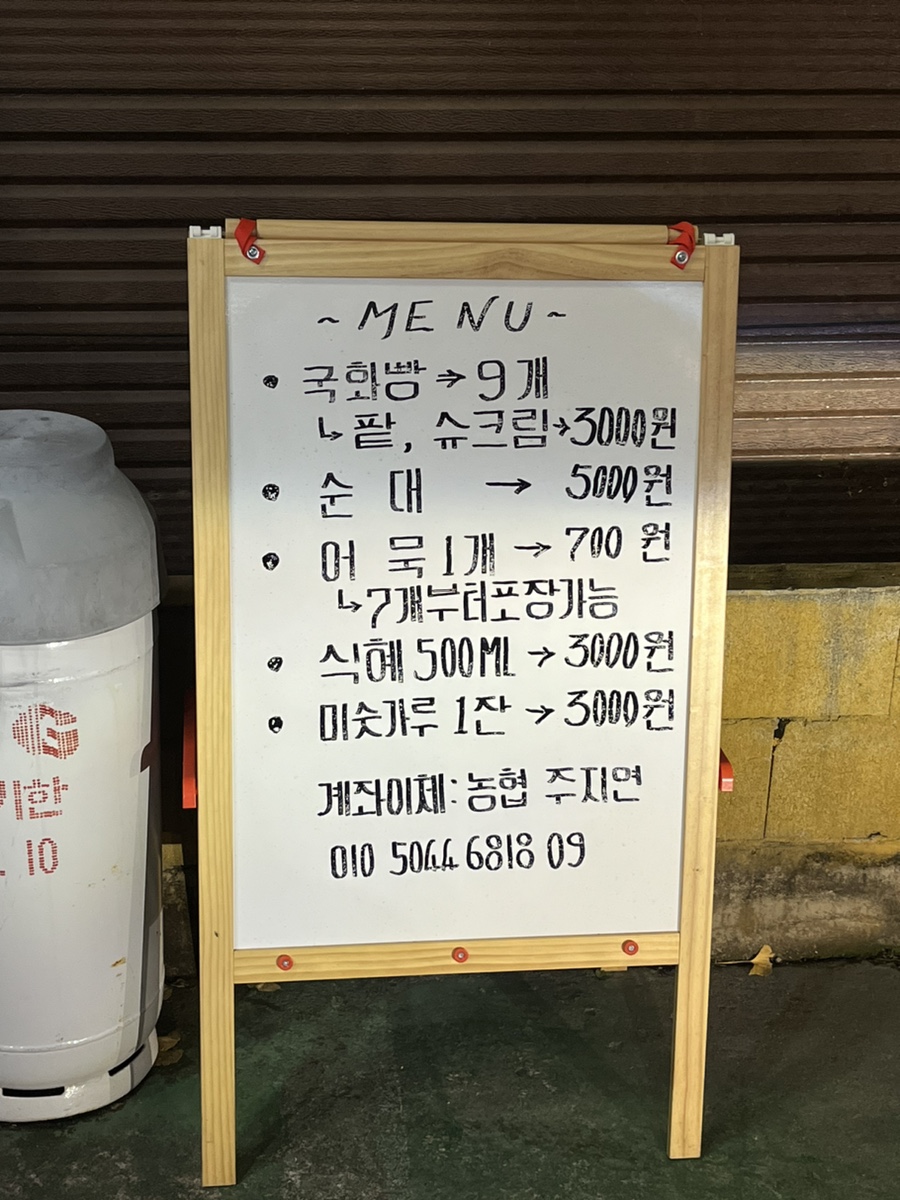 ~ MENU ~
• 국화빵 → 9개
↳ 팥, 슈크림 → 3000원
• 순 대 → 5000원
• 어 묵 1개 → 700 원
↳ 7개부터포장가능
• 식혜 500ML → 3000원
• 미숫가루 1잔 → 3000원
계좌이체: 농협 주지연
010 5044 6818 09
10